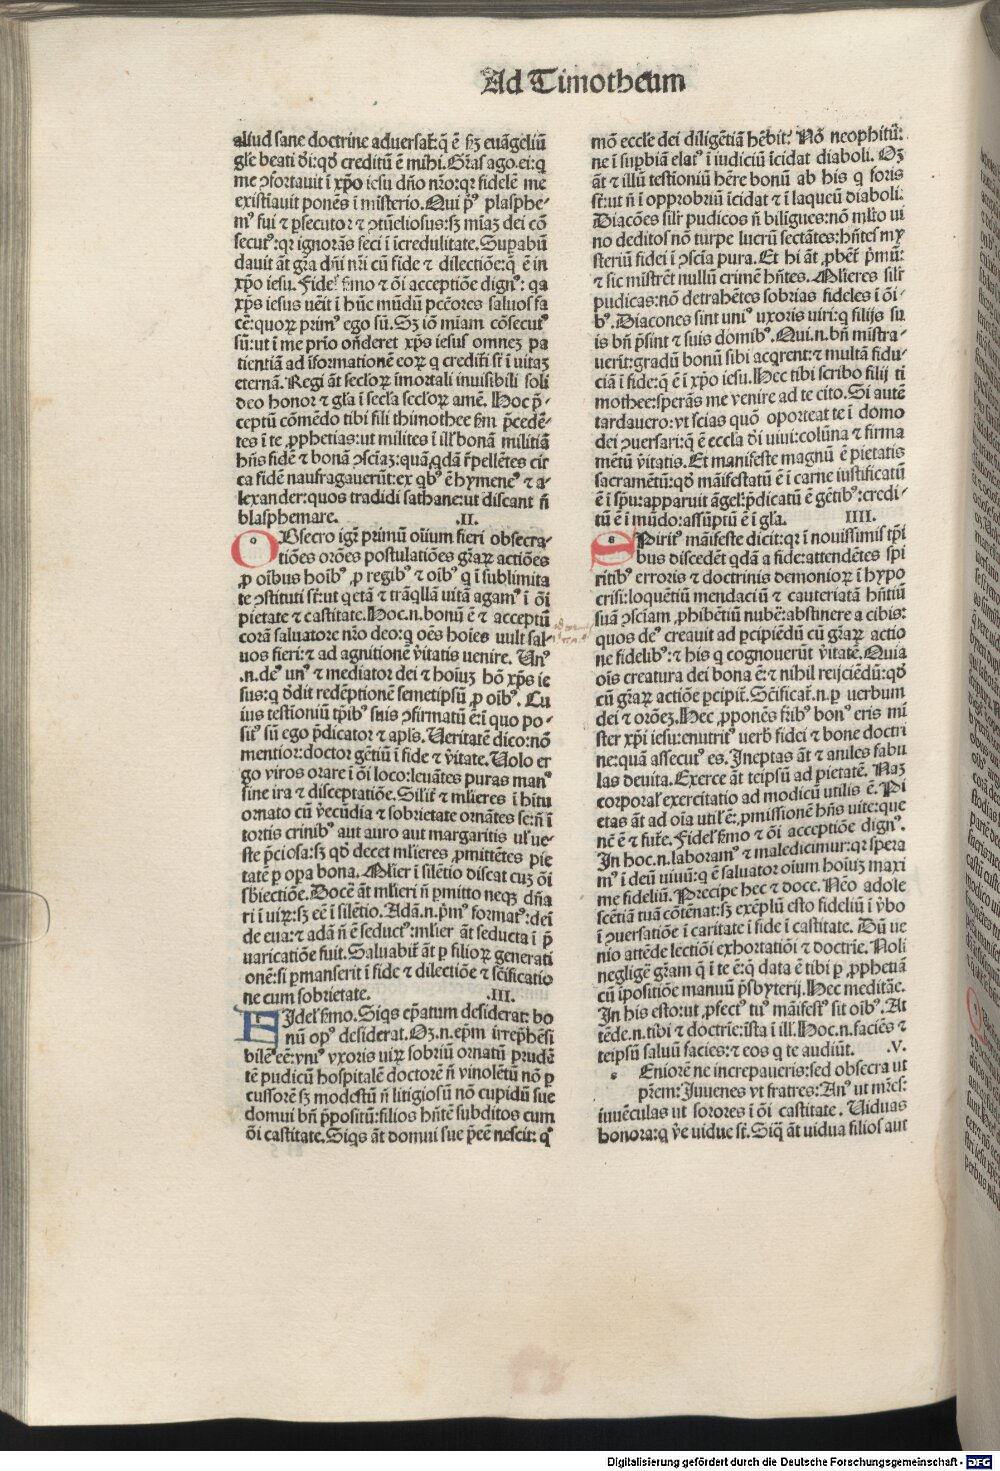 Ad Timotheum
aliud sane doctrine aduersat᷑: q̄ ē ẜꝫ euāgeliū
gl̄e beati d̄i: qḋ creditū ē mihi. Gr̄as ago ei: q
me ↄfortauit ī xp̄o iesu dn̄o nr̄o: qꝛ fidelē me
existīauit ponēs ī misterio. Qui pꝰ plasphe⸗
mꝰ fui ⁊ ꝑsecutor ⁊ ↄtūeliosus: sꝫ mīaꝫ dei cō
secutꝰ: qꝛ ignorās feci ī īcredulitate. Supabū
dauit āt gr̄a dn̄i nr̄i cū fide ⁊ dilectiōe: q̄ ē in
xp̄o iesu. Fidel̓ ẜmo ⁊ ōi acceptiōe dignꝰ: qa
xp̄s iesus uēit ī hūc mūdū pctōres saluos fa
cē: quoꝝ primꝰ ego sū. Sꝫ iō miam cōsecutꝰ
sū: ut ī me prīo on̄deret xp̄s iesusꝰ omneꝫ pa
tientiā ad īformationē eoꝝ q credit̄i st̄ ī uitaꝫ
eternā. Regi āt secl̓oꝝ īmortali inuisibili soli
deo honor ⁊ gl̄a ī secl̓a secl̓oꝝ amē. Hoc p̄⸗
ceptū cōmēdo tibi fili thimothee ẜm p̄cedē⸗
tes ī te ꝓphetias: ut milites ī ill̓ bonā militiā
hn̄s fidē ⁊ bonā ↄsciaꝫ: quā qdā r̄pellētes cir
ca fidē naufragauerūt: ex qbꝰ ē hymeneꝰ ⁊ a⸗
lexander: quos tradidi sathane: ut discant n̄
blasphemare. .II.
OBsecro igr̄ primū oīium fieri obsecra⸗
tiōes orōes postulatiōes gr̄aꝝ actiōes
ꝓ oībus hoībꝰ ꝓ regibꝰ ⁊ oībꝰ q ī sublimita
te ↄstituti st̄: ut q̄etā ⁊ trāqllā uitā agamꝰ ī ōi
pietate ⁊ castitate. Hoc .n. bonū ē ⁊ acceptū
corā saluatore nr̄o deo: q oēs hoīes uult sal⸗
uos fieri: ⁊ ad agnitionē v̄itatis uenire. Unꝰ
.n. deꝰ unꝰ ⁊ mediator dei ⁊ hoīuꝫ hō xp̄s ie
sus: q ꝺdit redēptionē semetipsū ꝓ oībꝰ. Cu
ius testioniū tp̄ibꝰ suis ↄfirmatū ē: ī quo po⸗
sitꝰ sū ego p̄dicator ⁊ apl̄s. Ueritatē dico: nō
mentior: doctor gētiū ī fide ⁊ v̄itate. Uolo er
go viros orare ī ōi loco: leuātes puras manꝰ
sine ira ⁊ disceptatiōe. Silīt̄ ⁊ ml̄ieres ī hītu
ornato cū v̄ecūdia ⁊ sobrietate ornātes se: n̄ ī
tortis crinibꝰ aut auro aut margaritis ul̓ ue⸗
ste p̄ciosa: sꝫ qḋ decet ml̄ieres ꝓmittētes pie
tatē ꝑ oꝑa bona. Ml̄ier ī silētio discat cuꝫ ōi
sbiectiōe. Docē āt ml̄ieri n̄ ꝑmitto neqꝫ dn̄a
ri ī uiꝝ: sꝫ eē ī silētio. Adā .n. p̄mꝰ formatꝰ: deī
de eua: ⁊ adā n̄ ē seductꝰ: ml̄ier āt seducta ī p̄
uaricatiōe fuit. Saluabit᷑ āt ꝑ filioꝝ generati
onē: si ꝑmanserit ī fide ⁊ dilectiōe ⁊ sc̄ificatio
ne cum sobrietate. .III.
FIdel̓ ẜmo. Siqs ep̄atum desiderat: bo
nū opꝰ desiderat. Oꝫ .n. ep̄m irrep̄hēsi
bilē eē: vniꝰ vxoris uiꝝ sobriū ornatū prudē
tē pudicū hospitalē doctorē n̄ vinolētū nō ꝑ
cussorē sꝫ modestū n̄ litigiosū nō cupidū sue
domui bn̄ p̄positū: filios hn̄tē subditos cum
ōi castitate. Siqs āt domui sue p̄eē nescit: qͦ
mō eccl̓e dei diligētiā hēbit? Nō neophitū:
ne ī suꝑbiā elatꝰ ī iudiciū īcidat diaboli. Oꝫ
āt ⁊ illū testioniū hēre bonū ab his q foris
st̄: ut n̄ ī opprobriū īcidat ⁊ ī laqueū diaboli.
Diacōes sil̓r pudicos n̄ bilīgues: nō ml̓to ui
no deditos nō turpe lucrū sectātes: hn̄tes my
steriū fidei ī ↄscīa pura. Et hi āt ꝓbēt᷑ p̄mū:
⁊ sic mīstrēt nullū crimē hn̄tes. Ml̄ieres sil̓r
pudicas: nō detrahētes sobrias fideles ī ōi⸗
bꝰ. Diacones sint uniꝰ uxoris uiri: q filijs su
is bn̄ p̄sint ⁊ suis domibꝰ. Qui .n. bn̄ mīstra⸗
uerīt: gradū bonū sibi acqrent: ⁊ multā fidu⸗
ciā ī fide: q̄ ē ī xp̄o iesu. Hec tibi scribo filij ti
mothee: sperās me venire ad te cito. Si autē
tardauero: vt scias quō oporteat te ī domo
dei ↄuersari: q̄ ē eccl̓a d̄i uiui: colūna ⁊ firma
mētū v̄itatis. Et manifeste magnū ē pietatis
sacramētū: qḋ māifestatū ē ī carne iustificatū
ē ī sp̄u: apparuit āgel̓: p̄dicatū ē gētibꝰ: credi⸗
tū ē ī mūdo: assūptū ē ī gl̄a. IIII.
SPiritꝰ māifeste dicit: qꝛ ī nouissimis tp̄i
bus discedēt qdā a fide: attendētes spi
ritibꝰ erroris ⁊ doctrinis demonioꝝ ī hypo
crisi: loquētiū mendaciū ⁊ cauteriatā hn̄tiū
suā ↄsciam ꝓhibētiū nubē: abstinere a cibis:
quos deꝰ creauit ad ꝑcipiēdū cū gr̄aꝝ actio
ne fidelibꝰ: ⁊ his q cognouerūt v̄itatē. Quia
oīs creatura dei bona ē: ⁊ nihil reijciēdū: qḋ
cū gr̄aꝝ actiōe ꝑcipit᷑. Sc̄ificat᷑ .n. ꝑ uerbum
dei ⁊ orōeꝫ. Hec ꝓponēs fr̄ibꝰ bonꝰ eris mī
ster xp̄i iesu: enutritꝰ uerb̓ fidei ⁊ bone doctri
ne: quā assecutꝰ es. Ineptas āt ⁊ aniles fabu
las deuita. Exerce āt teipsū ad pietatē. Naꝫ
corporal̓ exercitatio ad modicū utilis ē. Pi
etas āt ad oīa util̓ ē: ꝓmissionē hn̄s uite: que
nc̄ ē ⁊ fut᷑e. Fidel̓ ẜmo ⁊ ōi acceptiōe dignꝰ.
In hoc .n. laboramꝰ ⁊ maledicimur: qꝛ spera
mꝰ ī deū uiuū: q ē saluator oīum hoīuꝫ maxi
me fideliū. Precipe hec ⁊ doce. Nēo adole
scētiā tuā cōtēnat: sꝫ exēplū esto fideliū ī v̄bo
ī ↄuersatiōe ī caritate ī fide ī castitate. Dū ue
nio attēde lectiōi exhortatiōi ⁊ doctrīe. Noli
negligē gr̄am q̄ ī te ē: q̄ data ē tibi ꝑ ꝓphetiā
cū īpositiōe manuū p̄sbyterij. Hec meditāe.
In his esto: ut ꝓfectꝰ tuꝰ māifestꝰ sit oībꝰ. At
tēde .n. tibi ⁊ doctrīe: īsta ī ill̓. Hoc .n. faciēs ⁊
teipsū saluū facies: ⁊ eos q te audiūt. .V.
s Eniorē ne increpaueris: sed obsecra ut
pr̄em: Iuuenes vt fratres: Anꝰ ut mr̄es:
iuuēculas ut sorores ī ōi castitate. Uiduas
honora: q v̄e uidue st̄. Siq̄ āt uidua filios aut
Digitalisierung gefördert durch die Deutsche Forschungsgemeinschaft - DFG